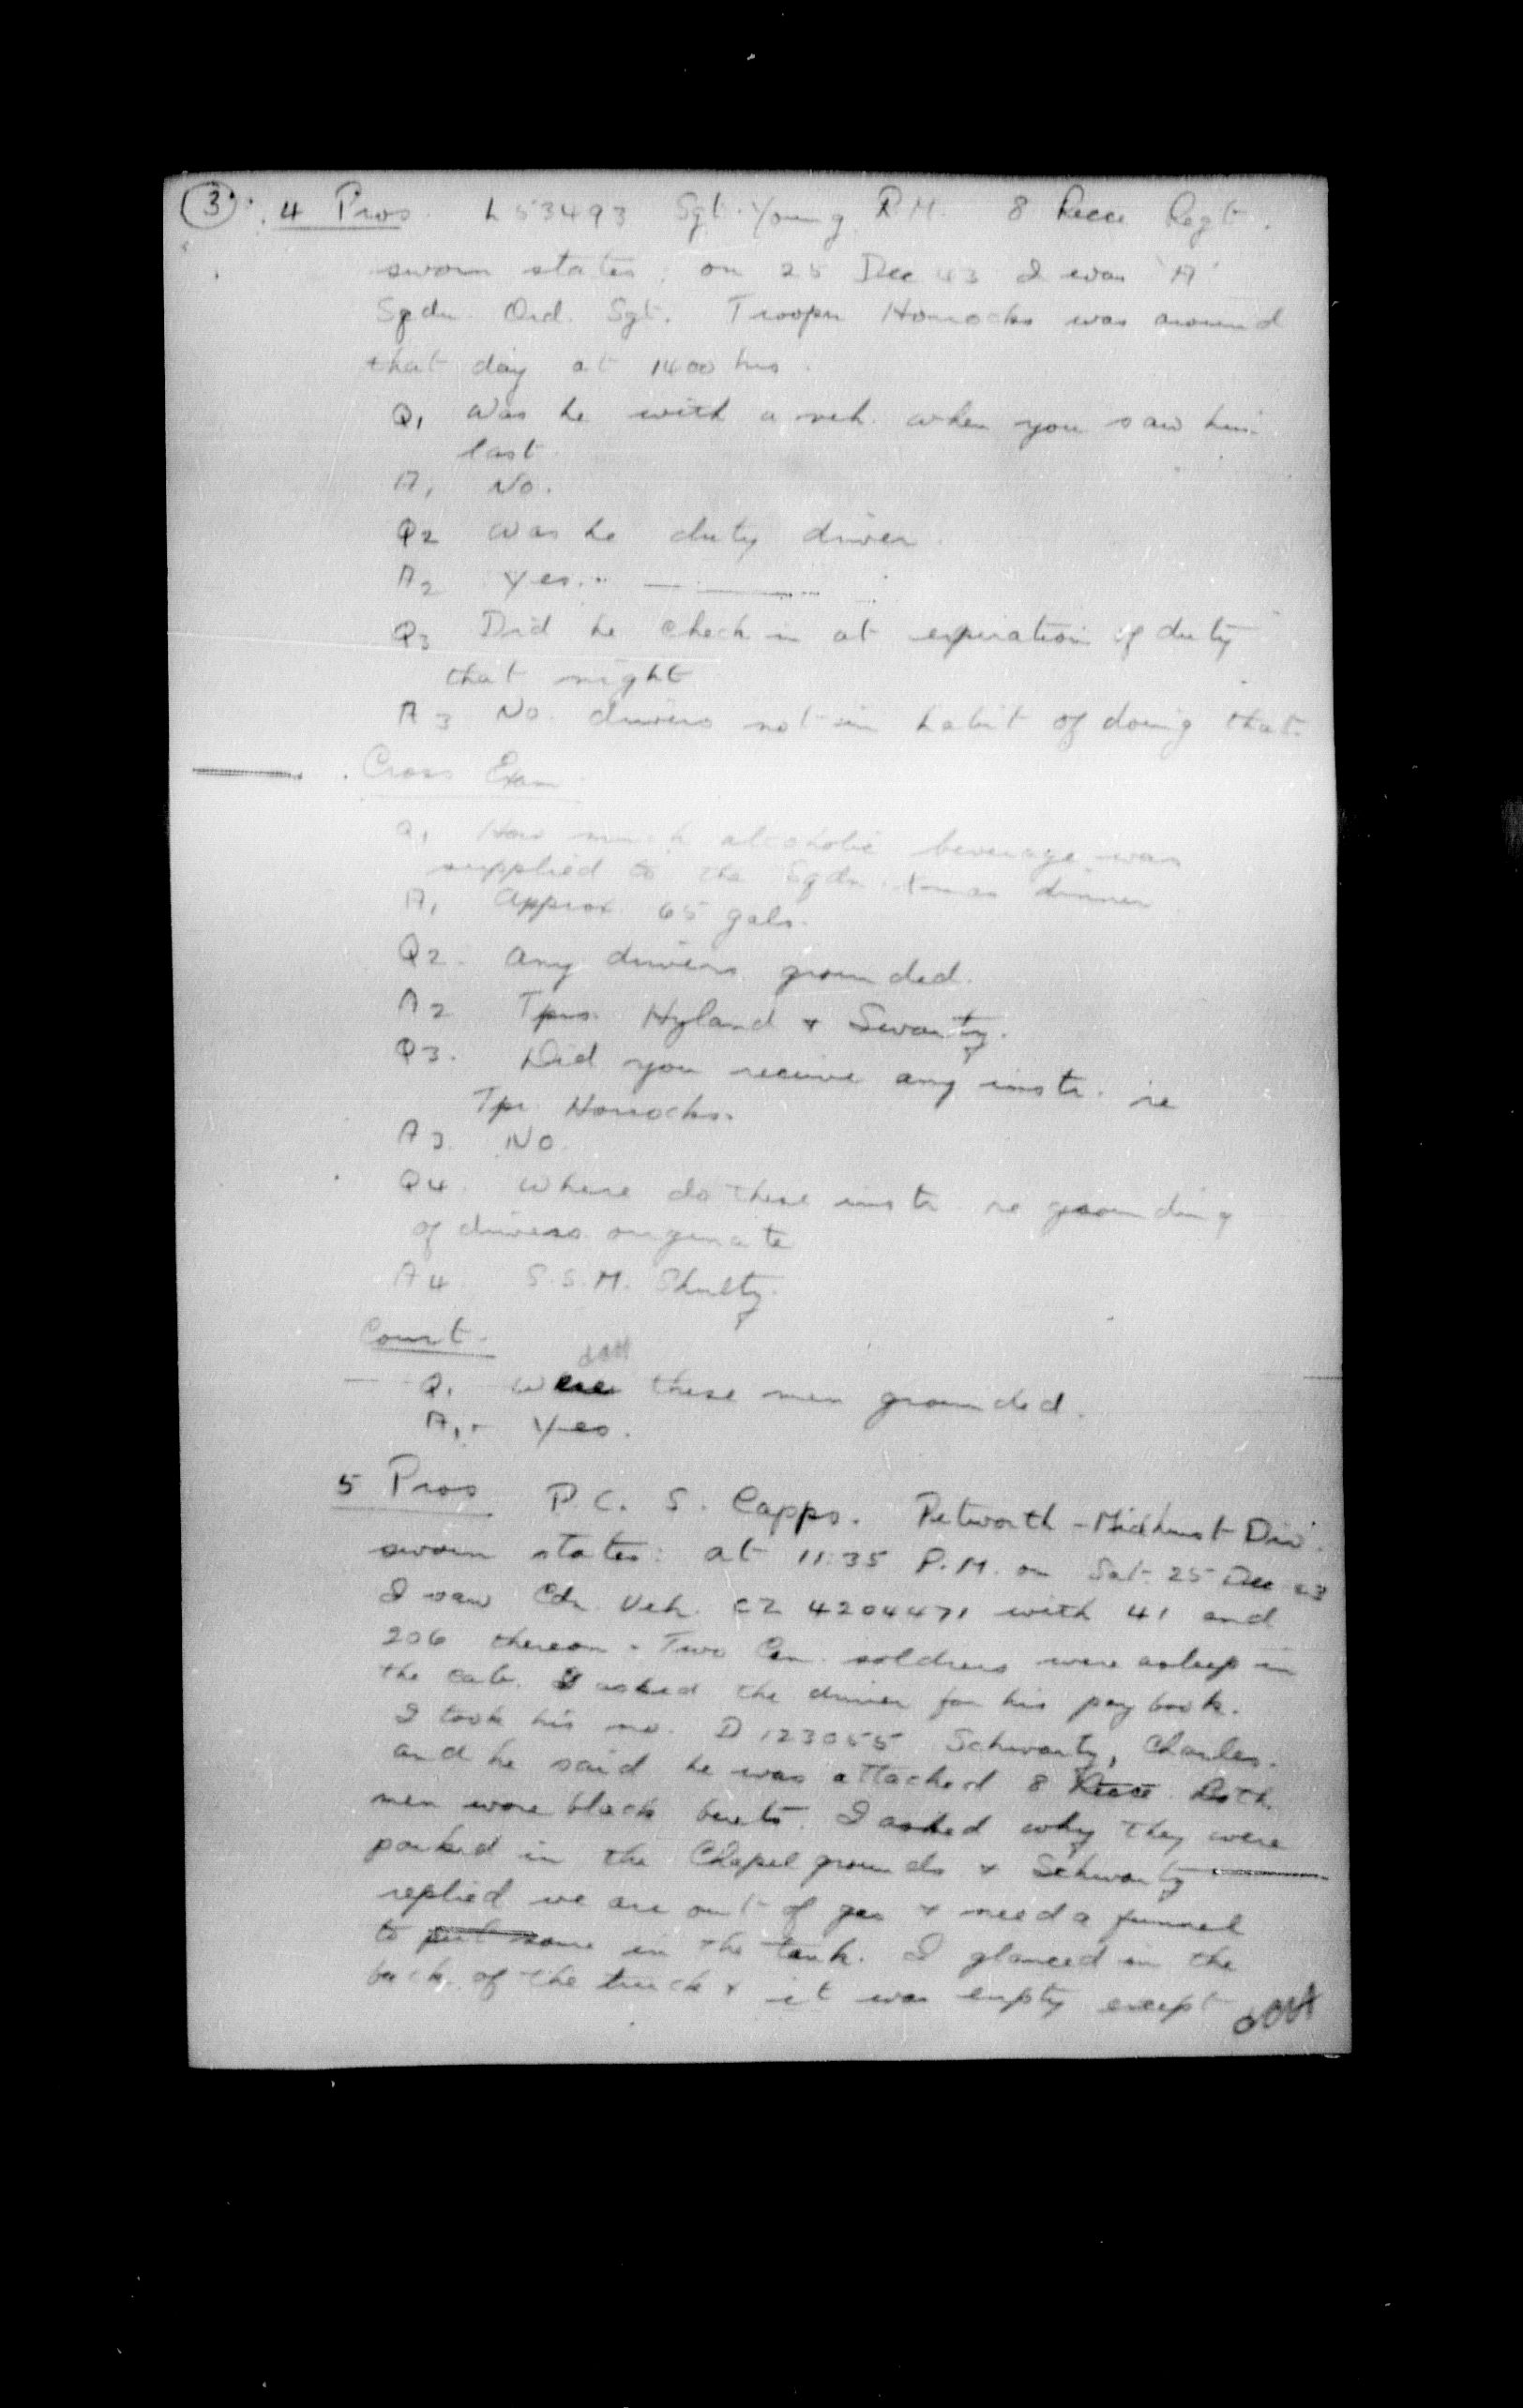 3 4 Pros. L 53493 Sgt. Young R.M. 8 Recce Regt.
sworn states: on 25 Dec 43 I was 'A'
Sqdn. Ord. Sgt. Trooper Horrocks was around
that day at 1400 hrs.
Q1 Was he with a veh. when you saw him
last.
A1 No.
Q2 Was he duty driver.
A2 Yes.
Q3 Did he check in at expiration of duty
that night
A3 No. drivers not in habit of doing that.
Cross Exam
Q1 How much alcoholic beverage was
supplied to the Sqdn. Xmas dinner
A1 Approx. 65 gals.
Q2. Any drivers grounded.
A2 Tprs. Hyland & Swartz.
Q3. Did you receive any instr. re
Tpr. Horrocks.
A3. No.
Q4. Where do these instr. re grounding
of drivers originate
A4 S.S.M. Shultz.
Court.
Q1 Were these men grounded.
A1. Yes.
5 Pros P.C. S. Capps. Petworth - Midhurst Div.
sworn states: at 11:35 P.M. on Sat. 25 Dec 43
I saw Cdn. Veh. CZ 4204471 with 41 and
206 thereon. Two Can. soldiers were asleep in
the cab. I asked the driver for his pay book.
I took his no. D 123055 Schwartz, Charles.
and he said he was attached 8 Recce. Both
men wore black berets. I asked why they were
parked in the Chapel grounds & Schwartz
replied we are out of gas & need a funnel
to put some in the tank. I glanced in the
back of the truck & it was empty except